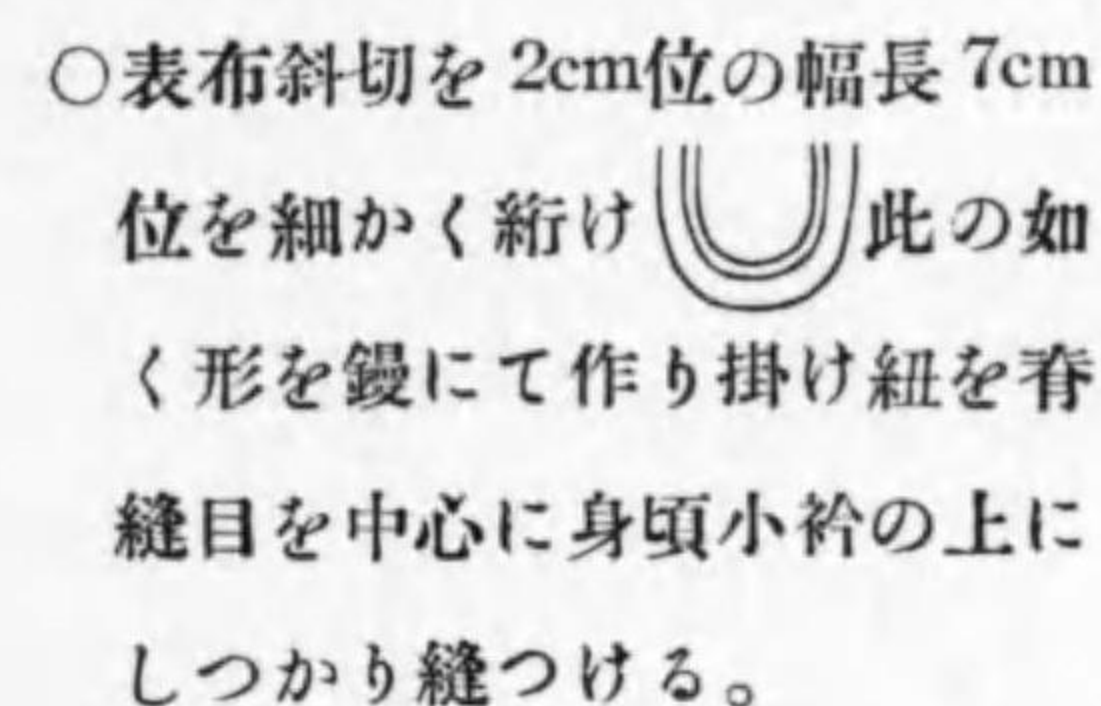 ○表布斜切を 2cm位の幅長 7cm
位を細かく絎け此の如
く形を鏝にて作り掛け紐を脊
縫目を中心に身頃小衿の上に
しつかり縫つける。